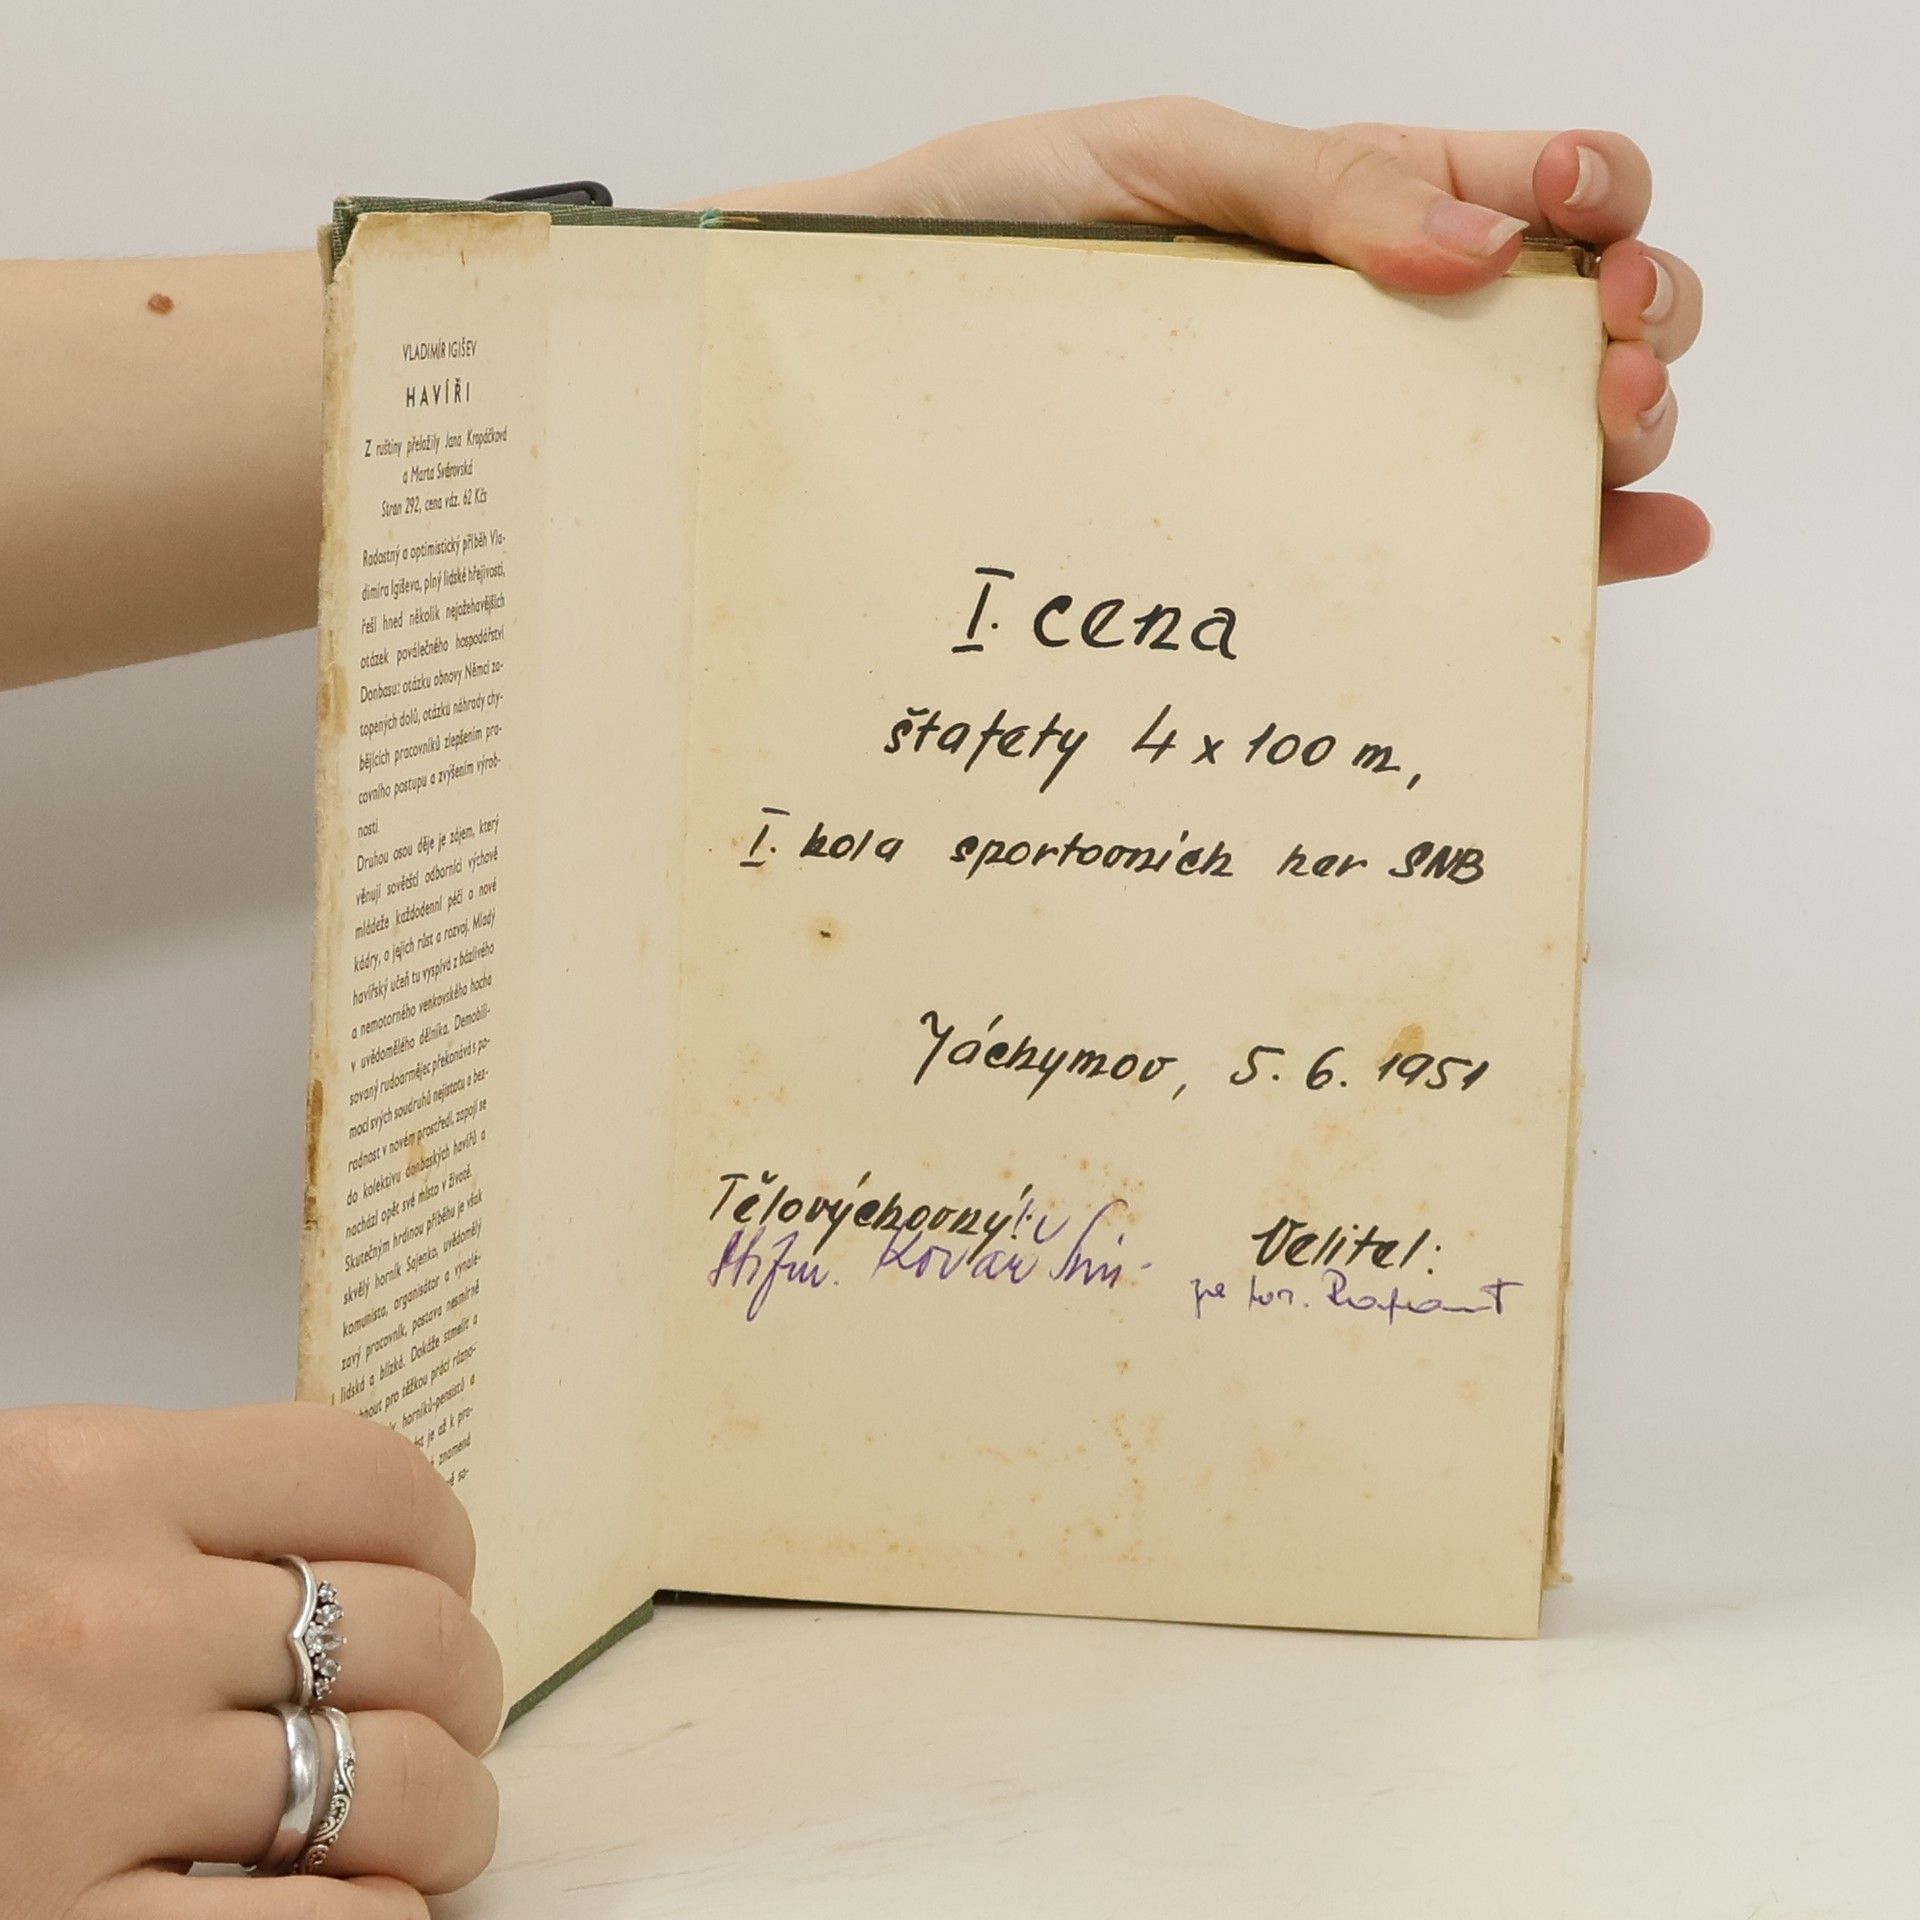 VLADIMÍR IGIŠEV
HAVÍŘI
Z ruštiny přeložily Jana Kropáčková
a Marta Svárovská
Stran 292, cena váz. 62 Kčs
Radostný a optimistický příběh Vla-
dimíra Igiševa, plný lidské hřejivosti,
řeší hned několik nejožehavějších
otázek poválečného hospodářství
Donbasu: otázku obnovy Němci za-
topených dolů, otázku náhrady chy-
bějících pracovníků zlepšením pra-
covního postupu a zvýšením výrob-
nosti.
Druhou osou děje je zájem, který
věnují sovětští odborníci výchově
mládeže každodenní péčí o nové
kádry, o jejich růst a rozvoj. Mladý
havířský učeň tu vyspívá z bázlivého
a nemotorného venkovského hocha
v uvědomělého dělníka. Demobili-
sovaný rudoarmějec překonává s po-
mocí svých soudruhů nejistotu a bez-
radnost v novém prostředí, zapojí se
do kolektivu donbaských havířů a
nachází opět své místo v životě.
Skutečným hrdinou příběhu je však
skvělý horník Sajenko, uvědomělý
komunista, organisátor a vynalé-
zavý pracovník, postava nesmírně
lidská a blízká. Dokáže stmelit a
hnout pro těžkou práci různo-
horníků-pensistů a
je až k pro-
znamená
so-
I. cena
štafety 4 x 100 m,
I. kola sportovních her SNB
Jáchymov, 5. 6. 1951
Tělovýchovný:
Stržm. Kovář
Velitel: